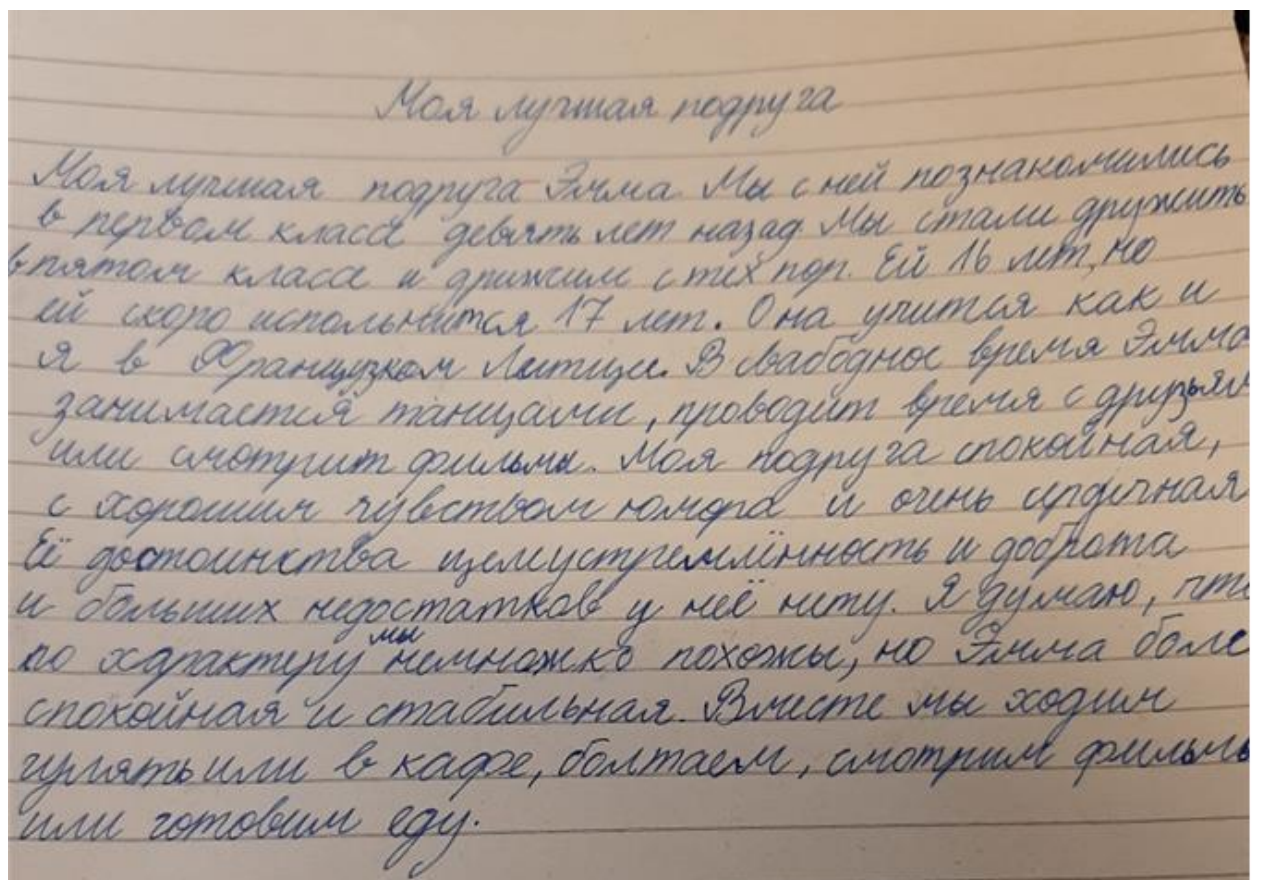 Моя лучшая подруга
Моя лучшая подруга Эмма. Мы с ней познакомились
в первом класе девять лет назад. Мы стали дружить
в пятом класе и дружим с тех пор. Ей 16 лет, но
ей скоро испольнится 17 лет. Она учится как и
я в Французком Литице. В свабодное время Эмма
занимается танцами, проводит время с друзьям
или смотрит фильмы. Моя подруга спокойная,
с хорошим чувством юмора и очень
Её достоинства целиустремлённость и доброта
и больших недостатков у неё нету. Я думаю, что
по характеру мы немножко похожы, но Эмма боле
спокойная и стабильная. Вместе мы ходим
гулять или в кафе, болтаем, смотрим фильмы
или готовим еду.